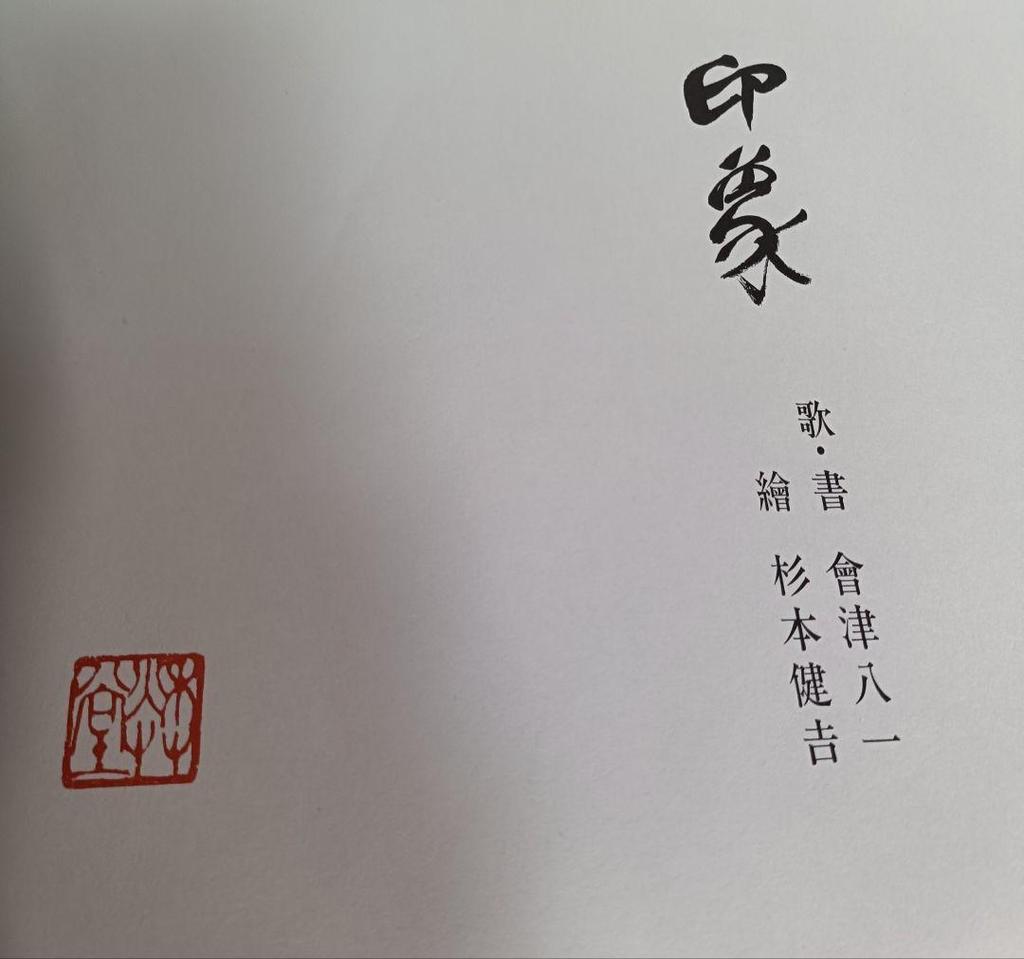 印象
歌・書 會津八一
繪 杉本健𠮷